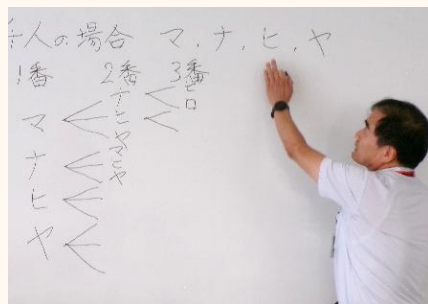 4人の場合 マ, ナ, ヒ, ヤ
1番 2番 3番
マ
ナ
ヒ
ヤ
ナ
ヒ
ヤ
マ
ヒ
ヤ
ヒ
ロ